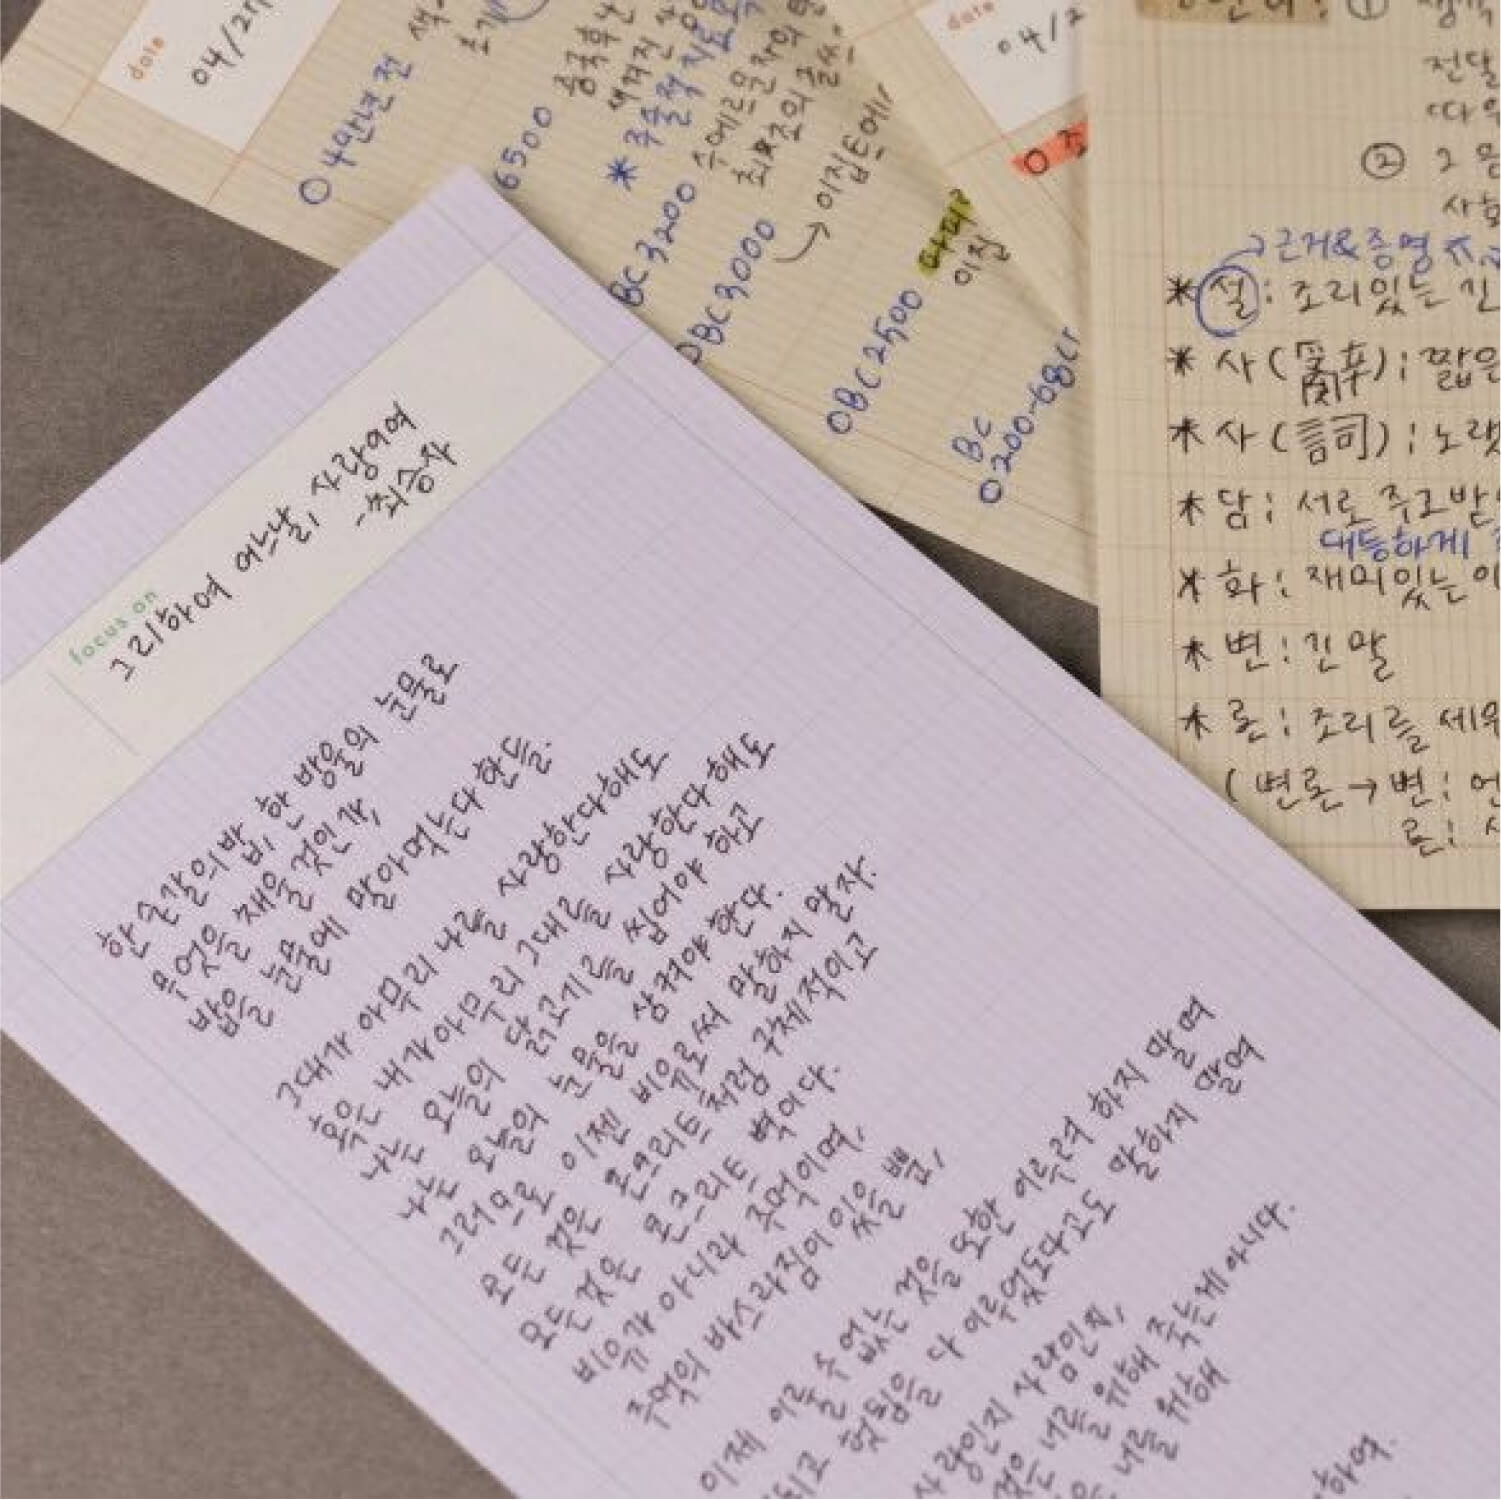 focus on
그리하여 어느날, 사랑이여
-최승자
한 숟갈의 밥, 한 방울의 눈물로
무엇을 채울 것인가,
밥을 눈물에 말아먹는다 한들.
그대가 아무리 나를 사랑한다해도
혹은 내가 아무리 그대를 사랑한다해도
나는 오늘의 닭고기를 씹어야 하고
나는 오늘의 눈물을 삼켜야 한다.
그러므로 이젠 비유로써 말하지 말자.
모든 것은 콘크리트처럼 구체적이고
모든것은 콘크리트 벽이다.
비유가 아니라 주먹이며,
주먹의 바스라짐이 있을 뿐,
이제 이룰 수 없는 것을 또한 이루려 하지 말며
되고 헛됨을 다 이루었도다고도 말하지 말며
사랑인지 사람인지,
것은 너를 위해 죽는게 아니다.
너를 위해
하여.
date
04/21
04만년전
6500
* 주술적
BC 3200
최초의
BC 3000
→ 이집트에서
OBC 2500
이집
BC
0200-68
date
04/2
①
전달
②
사회
→근거&증명
* 설: 조리있는 긴
* 사( ): 짧은
* 사(言司): 노랫
* 담: 서로 주고받
대등하게
* 화: 재미있는 이
* 변: 긴 말
* 론: 조리를 세워
(변론→변: 언
론: